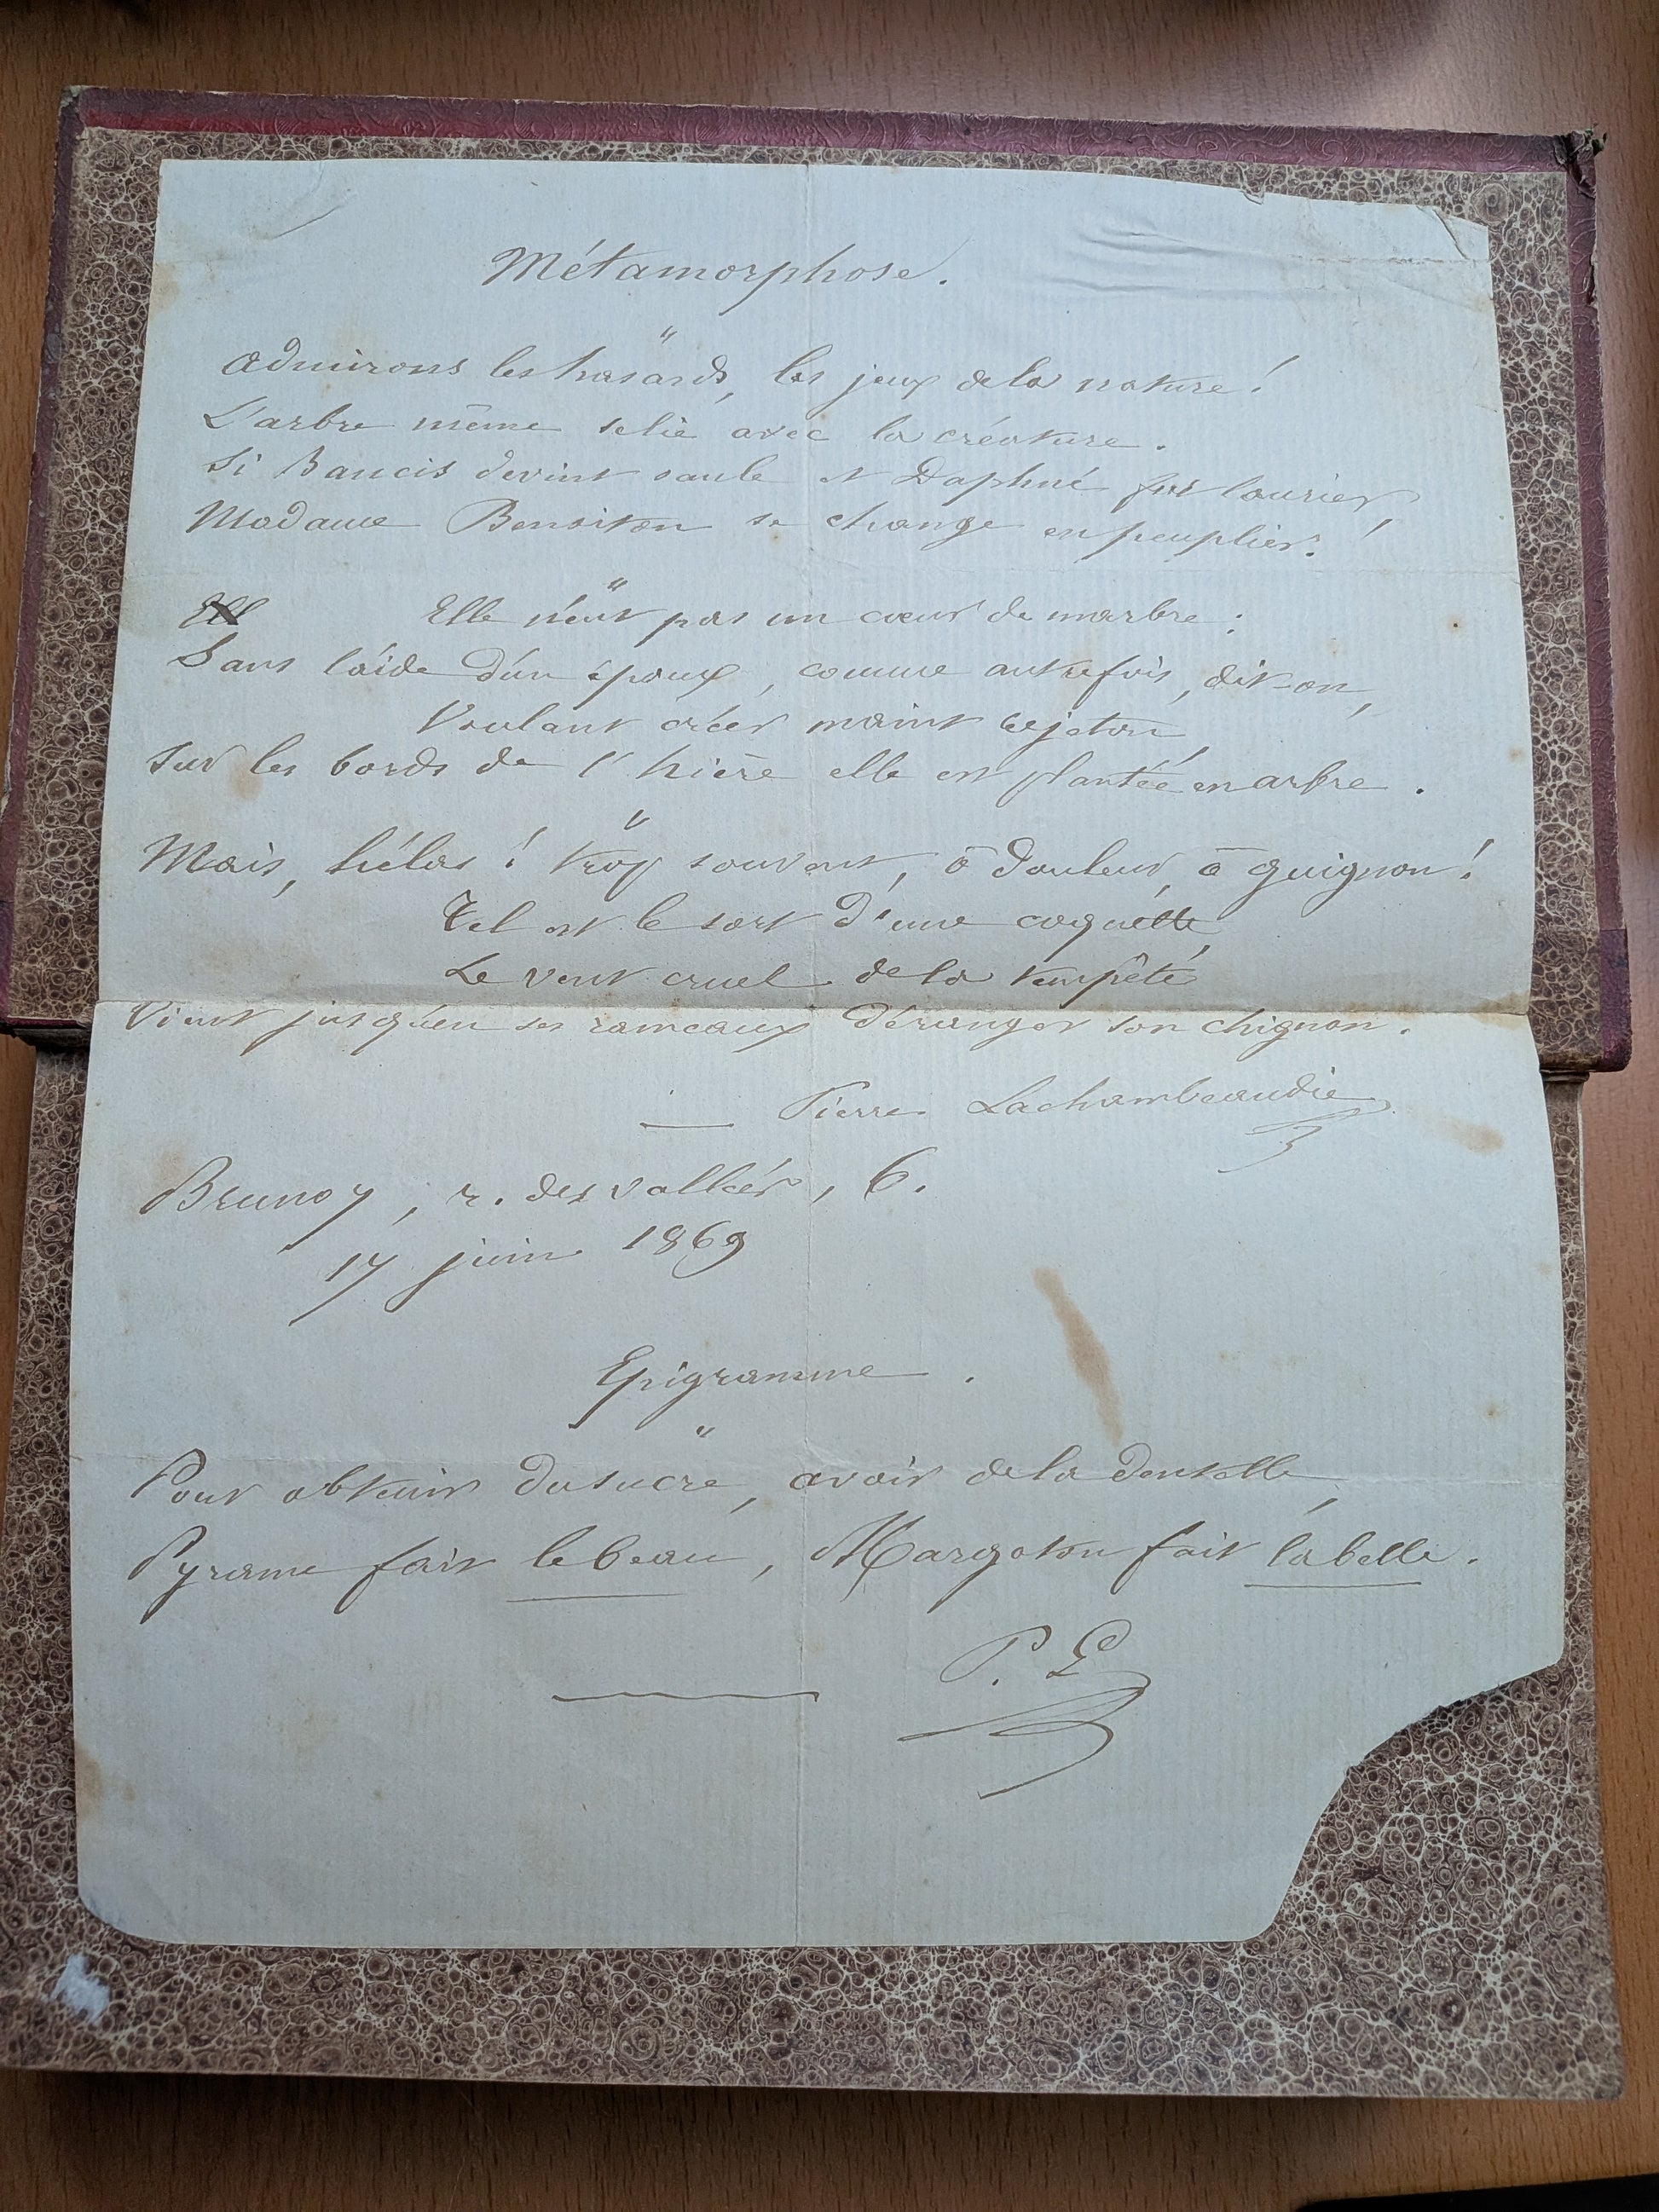 Métamorphose.
"
Admirons les hasards, les jeux de la nature !
L'arbre même se lie avec la créature.
Si Baucis devint saule et Daphné fut laurier,
Madame Benoiton se change en peuplier !
"
Ell Elle n'eut pas un cœur de marbre :
Sans l'aide d'un époux, comme autrefois, dit-on,
Voulant créer maint rejeton,
Sur les bords de l'hière elle est plantée en arbre.
"
Mais, hélas ! trop souvent, ô douleur, ô guignon !
Tel est le sort d'une coquette,
Le vent cruel de la tempête
Vient jusqu'en ses rameaux déranger son chignon.
Pierre Lachambeaudie
Brunoy, r. des vallées, 6.
17 juin 1869
Epigramme.
"
Pour obtenir du sucre, avoir de la dentelle,
Pyrame fait le beau, Margoton fait la belle.
P. L